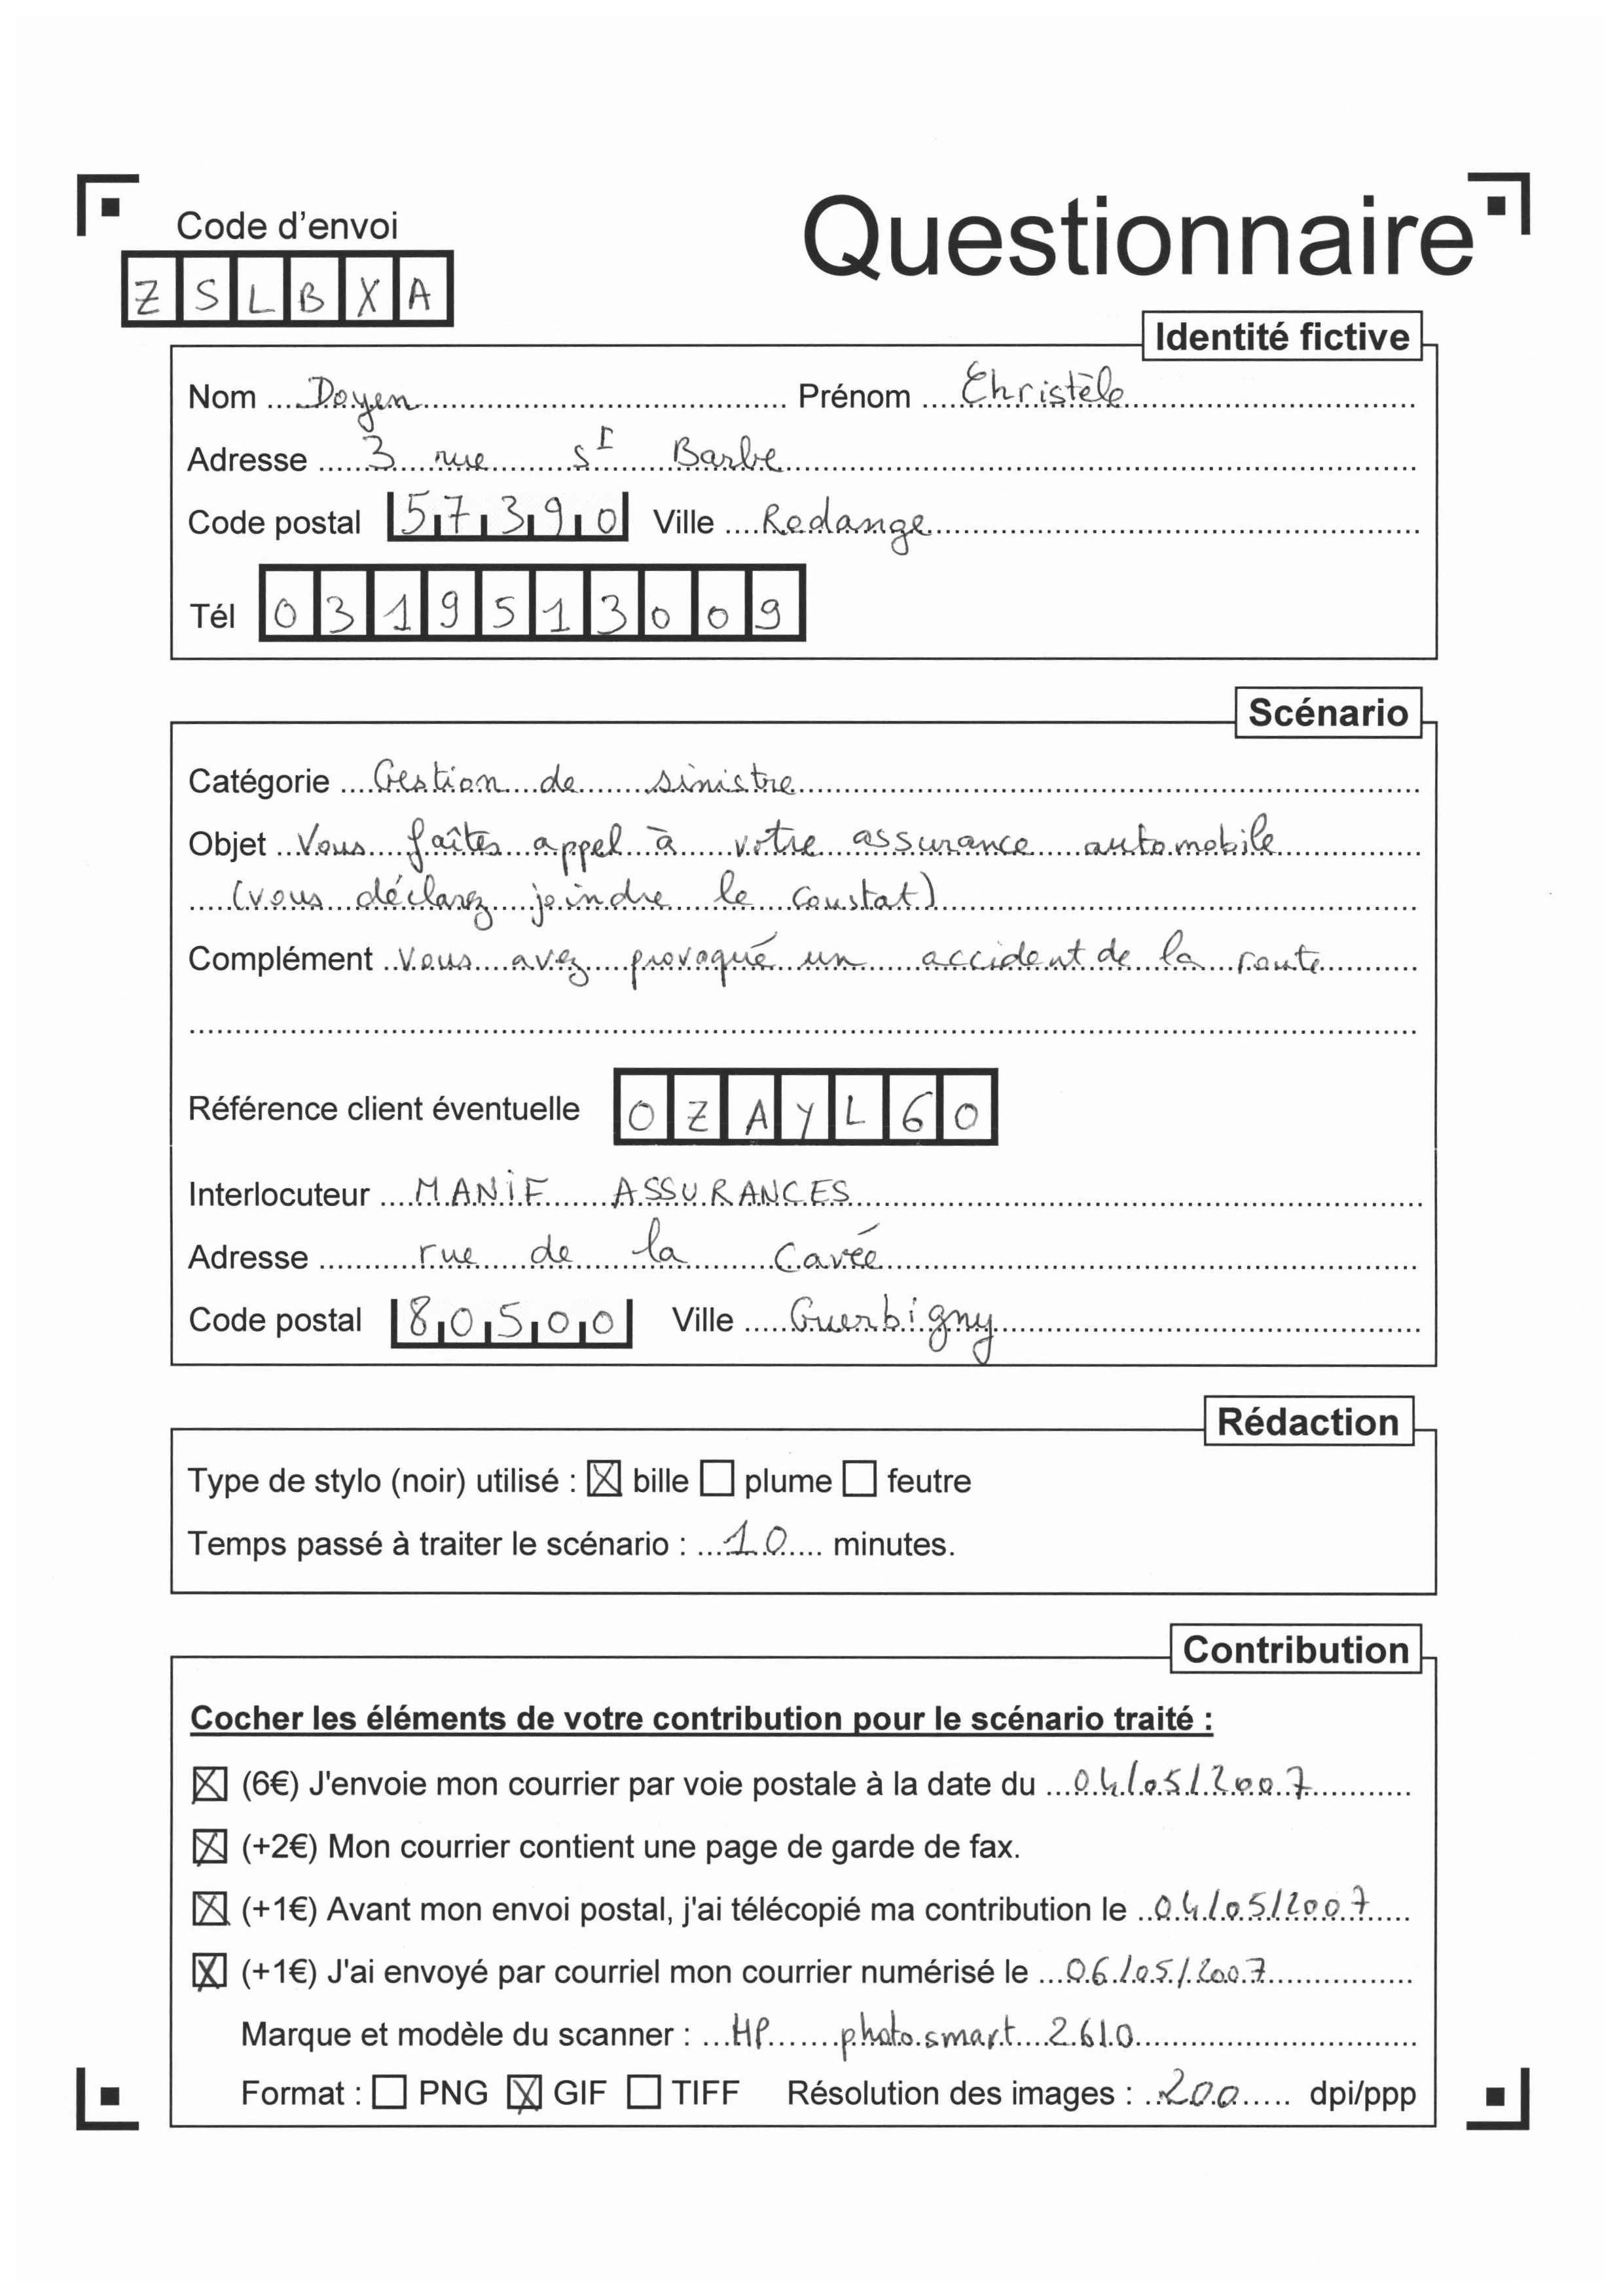 Code d'envoi
Questionnaire
ZSLBXA
Identité fictive
Nom Doyen Prénom Christèle
Adresse 3 rue St Barbe
Code postal 57390 Ville Redange
Tél 0319513009
Scénario
Catégorie Gestion de sinistre
Objet Vous faîtes appel à votre assurance automobile
(vous déclarez joindre le constat)
Complément Vous avez provoqué un accident de la route
Référence client éventuelle OZAYL60
Interlocuteur MANIF ASSURANCES
Adresse rue de la Cavée
Code postal 80500 Ville Guerbigny
Rédaction
Type de stylo (noir) utilisé : ☒ bille ☐ plume ☐ feutre
Temps passé à traiter le scénario : 10 minutes.
Contribution
Cocher les éléments de votre contribution pour le scénario traité :
☒ (6€) J'envoie mon courrier par voie postale à la date du 04/05/2007
☒ (+2€) Mon courrier contient une page de garde de fax.
☒ (+1€) Avant mon envoi postal, j'ai télécopié ma contribution le 04/05/2007
☒ (+1€) J'ai envoyé par courriel mon courrier numérisé le 06/05/2007
Marque et modèle du scanner : HP photosmart 2610
Format : ☐ PNG ☒ GIF ☐ TIFF Résolution des images : 200 dpi/ppp